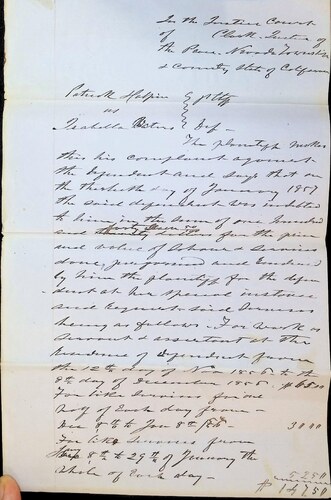 In the Justice Court
of Clark Justice of
the Peace Nevada Township
& County State of California
Patrick Halpin } pltff
vs
Isabella } Def
The plaintiff makes
this his complaint against
the defendant and says that on
the day of January 1857
the said defendant was indebted
to him in the sum of one hundred
and for the price
and value of and Services
done, performed and
by him the plaintiff for the defen
dant at her special instance
and Request said Services
being as follows - For work as
servant & assistant at the
Residence of Defendant from
the 12th day of Nov 1856 to the
8th day of December 1856.
For like Services for one
half of Each day from
Dec 8th to Jan 8th 30 00
For like Services from
8th to 29th of January the
whole of Each day - 52 50